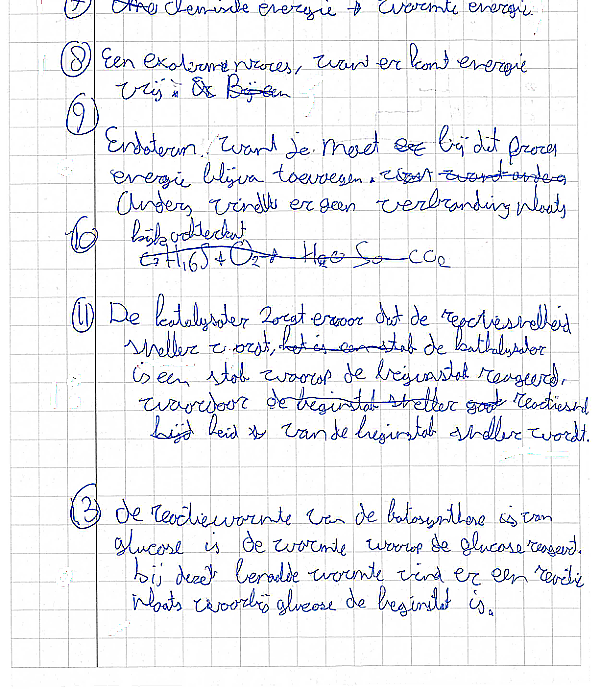 7 chemische energie → warmte energie.
8 Een exotherm proces, want er komt energie
vrij.
9
Endoterm, want je moet bij dit proces
energie blijven toevoegen.
Anders vindt er geen verbranding plaats
10 kijk achterkant
C7H16S + O2 → H2O SO CO2
11 De katalysator zorgt ervoor dat de reactiesnelheid
sneller wordt, de kathalysator
is een stof waarop de beginstof reageerd,
waardoor de beginstof sneller gaat reactiesnel
heid van de beginstof sneller wordt.
13 de reactiewarmte van de fotosynthese is van
glucose is de warmte waarop de glucose reageerd.
bij deze bepaalde warmte vind er een reactie
plaats waarbij glucose de beginstof is.